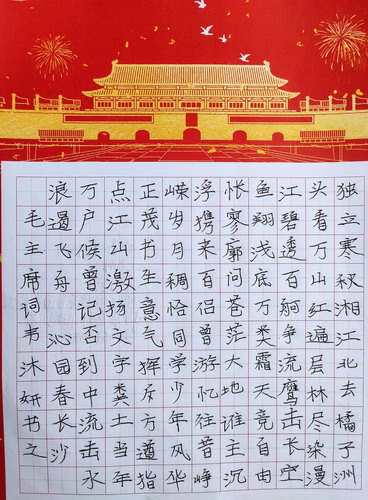 独立寒秋湘江北去橘子洲
头看万山红遍层林尽染漫
江碧透百舸争流鹰击长空
鱼翔浅底万类霜天竞自由
怅寥廓问苍茫大地谁主沉
浮携来百侣曾游忆往昔峥
嵘岁月稠恰同学少年风华
正茂书生意气挥斥方遒指
点江山激扬文字粪土当年
万户候曾记否到中流击水
浪遏飞舟 沁园春长沙
毛主席词韦沐妍书之